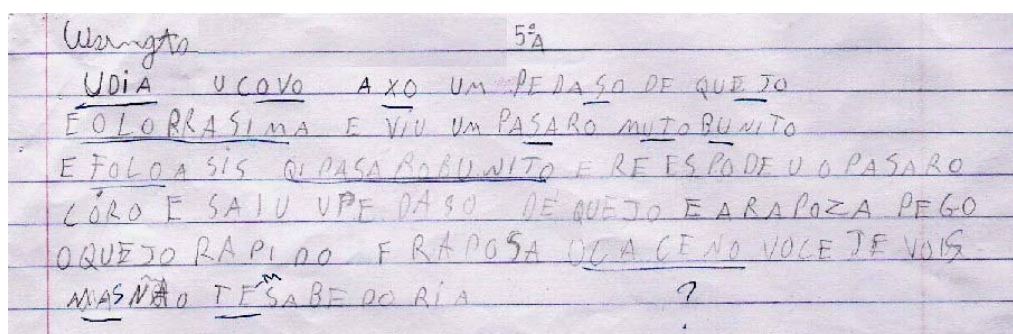 5ªA
UDIA UCOVO AXO UM PEDASO DE QUEJO
EOLORRASIMA E VIU UM PASARO MUTOBUNITO
E FOLOASIS QI PASAROBUNITO E REESPODEU O PASARO
CÓRO E SAIU UPEDASO DE QUEJO E ARAPOZA PEGO
OQUEJO RAPIDO E RAPOSA VOCE TE VOIS
MAS NÃO TEM SABEDORIA ?